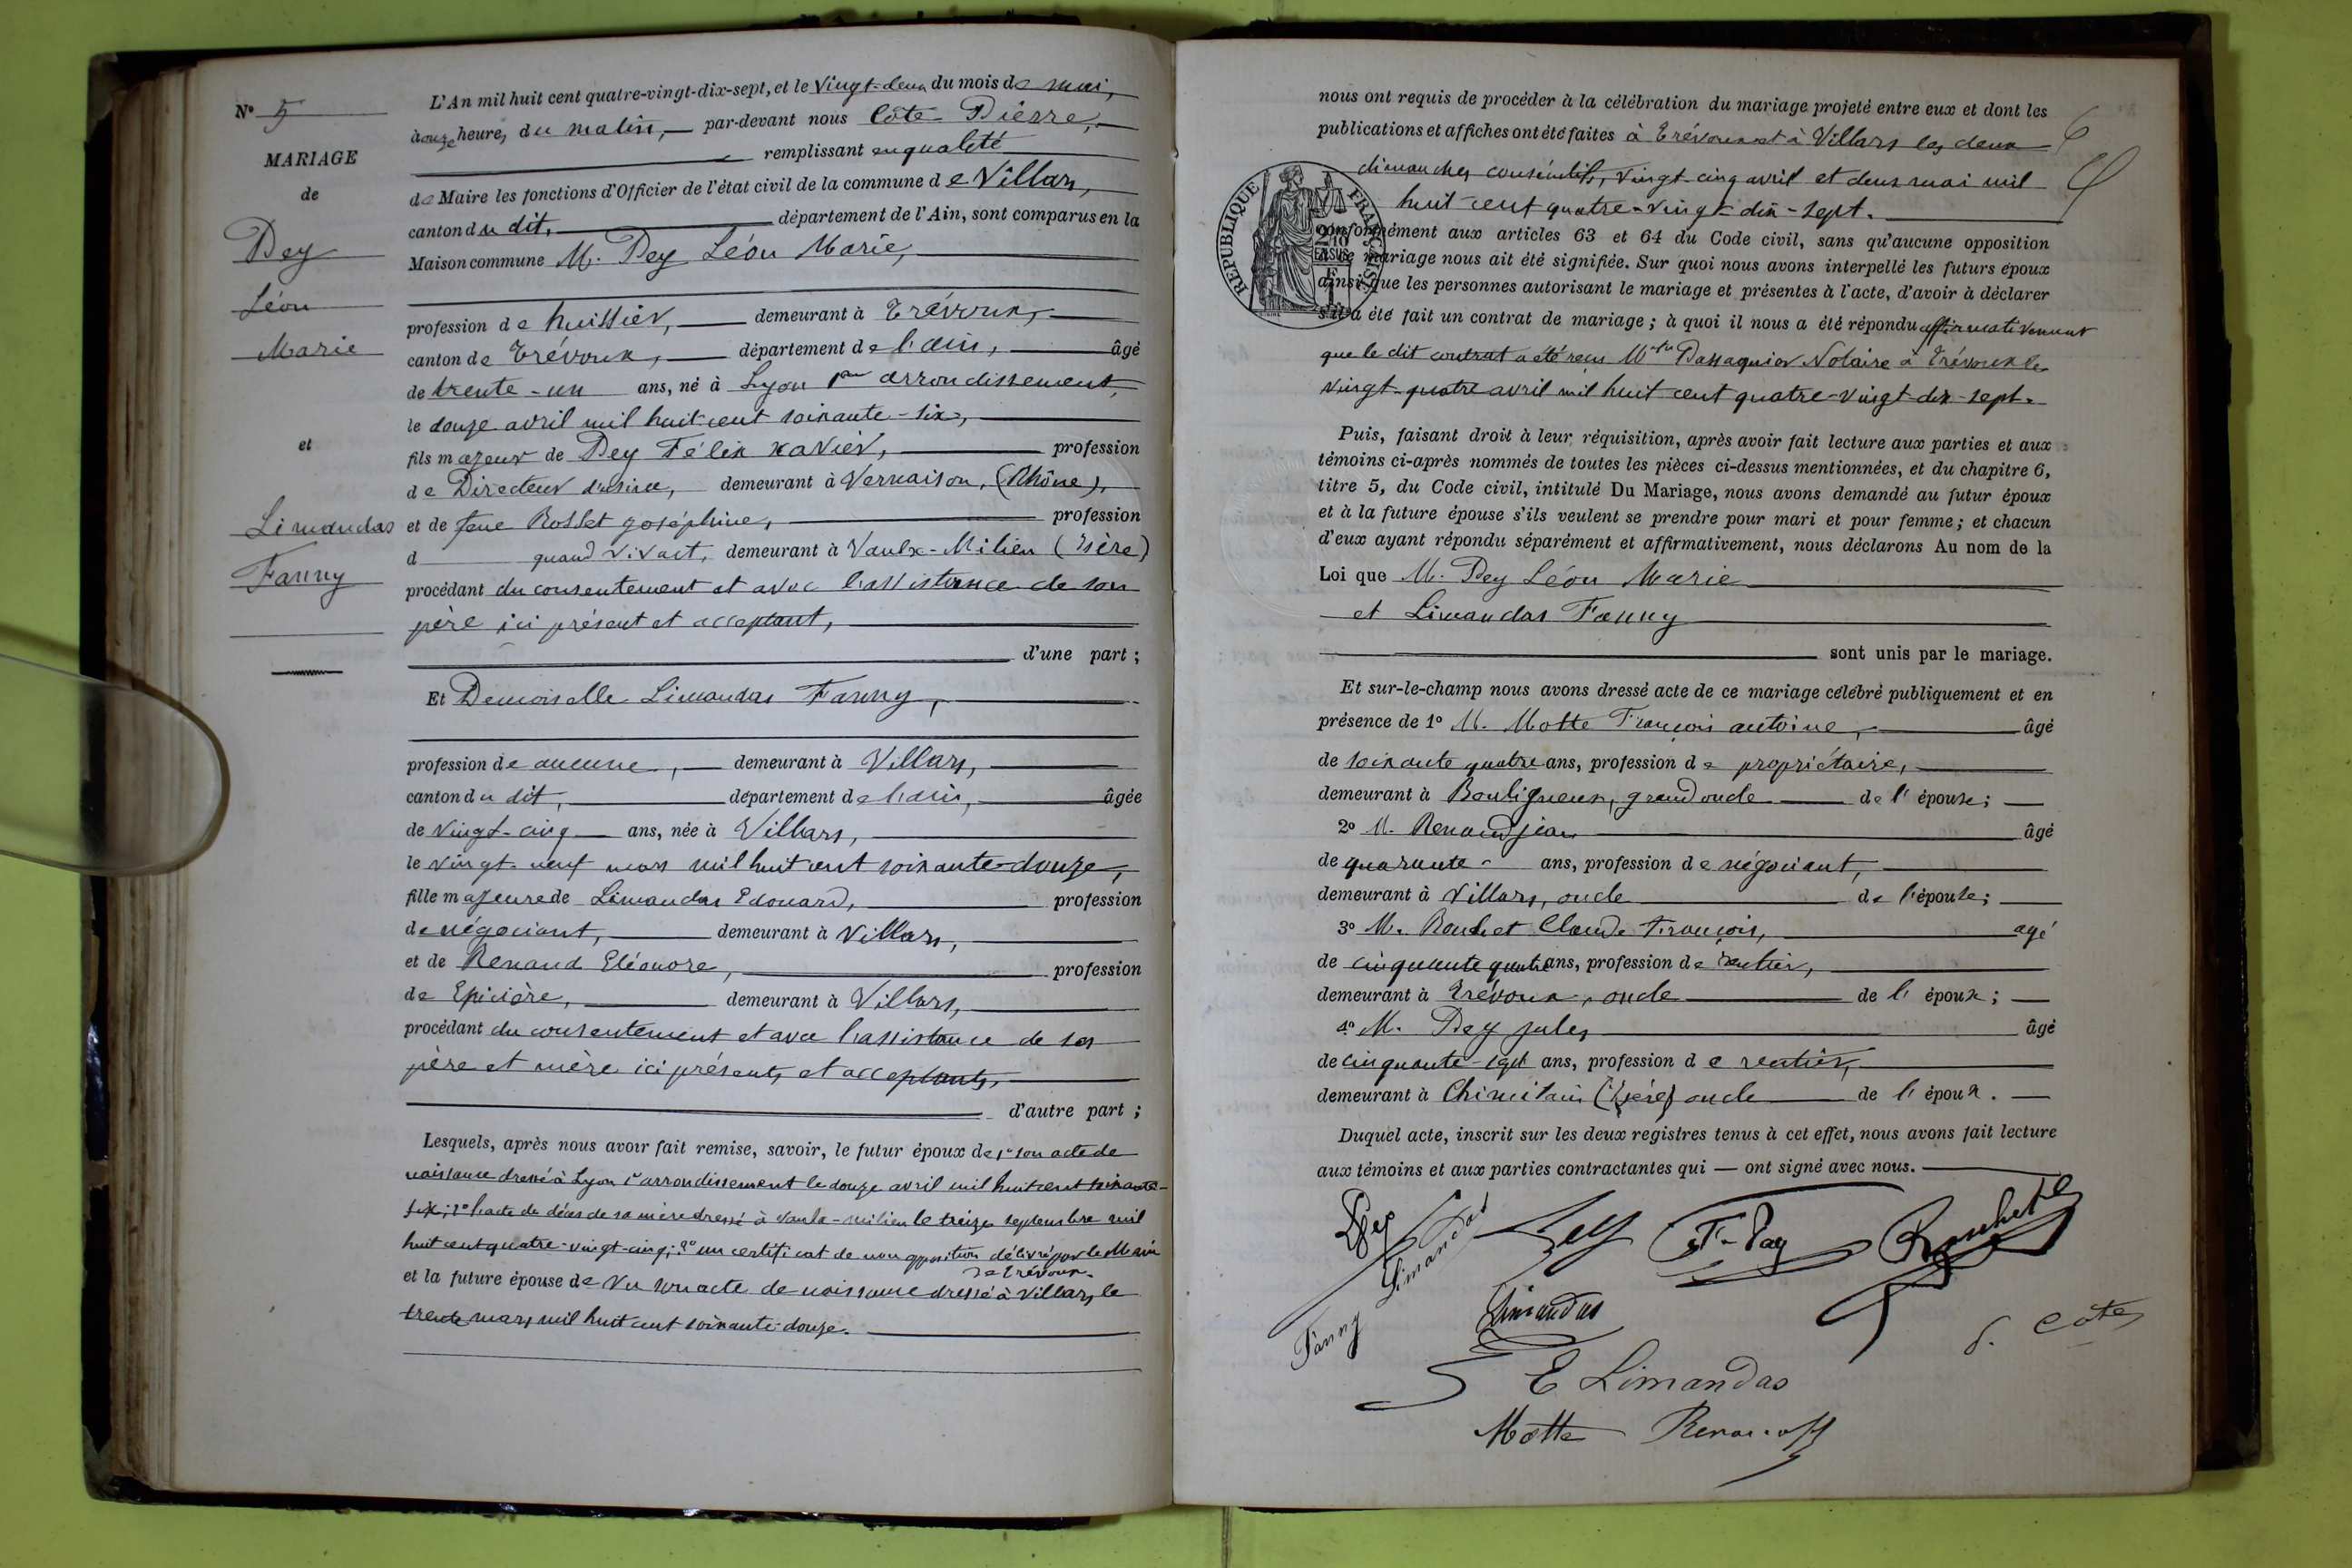 N° 5
MARIAGE
de
Dey
Léon
Marie
et
Limandas
Fanny
L'An mil huit cent quatre-vingt-dix-sept, et le vingt-deux du mois de mai,
à onze heures du matin, par-devant nous Côte Pierre,
remplissant en qualité
de Maire les fonctions d'Officier de l'état civil de la commune de Villars,
canton du dit, département de l'Ain, sont comparus en la
Maison commune M. Dey Léon Marie,
profession de huissier, demeurant à Trévoux,
canton de Trévoux, département de l'ain, âgé
de trente-un ans, né à Lyon 1er arrondissement,
le douze avril mil huit cent soixante-six,
fils majeur de Dey Félix Xavier, profession
de Directeur d'usine, demeurant à Vernaison, (Rhône),
et de feue Rosset Joséphine, profession
d quand vivait, demeurant à Vaulx-Milieu (Isère)
procédant du consentement et avec l'assistance de son
père ici présent et acceptant,
d'une part ;
Et Demoiselle Limandas Fanny,
profession de aucune, demeurant à Villars,
canton du dit, département de l'ain, âgée
de vingt-cinq ans, née à Villars,
le vingt-neuf mars mil huit cent soixante-douze,
fille majeure de Limandas Edouard, profession
de négociant, demeurant à Villars,
et de Renaud Eléonore, profession
de Epicière, demeurant à Villars,
procédant du consentement et avec l'assistance de ses
père et mère ici présents et acceptants,
d'autre part ;
Lesquels, après nous avoir fait remise, savoir, le futur époux de 1° son acte de
naissance dressé à Lyon 1er arrondissement le douze avril mil huit cent soixante-
six; 2° l'acte de décès de sa mère dressé à Vaulx-milieu le treize septembre mil
huit cent quatre-vingt-cinq; 3° un certificat de non opposition délivré par le Maire
de Trévoux.
et la future épouse de Vu son acte de naissance dressé à Villars le
trente mars mil huit cent soixante-douze.
nous ont requis de procéder à la célébration du mariage projeté entre eux et dont les
publications et affiches ont été faites à Trévoux et à Villars les deux
dimanches consécutifs, vingt-cinq avril et deux mai mil
huit cent quatre-vingt-dix-sept.
RÉPUBLIQUE FRANÇAISE
conformément aux articles 63 et 64 du Code civil, sans qu'aucune opposition
à ce mariage nous ait été signifiée. Sur quoi nous avons interpellé les futurs époux
ainsi que les personnes autorisant le mariage et présentes à l'acte, d'avoir à déclarer
s'il a été fait un contrat de mariage ; à quoi il nous a été répondu affirmativement
que le dit contrat a été reçu Mtre Passaquier Notaire à Trévoux le
vingt-quatre avril mil huit cent quatre-vingt-dix-sept.
Puis, faisant droit à leur réquisition, après avoir fait lecture aux parties et aux
témoins ci-après nommés de toutes les pièces ci-dessus mentionnées, et du chapitre 6,
titre 5, du Code civil, intitulé Du Mariage, nous avons demandé au futur époux
et à la future épouse s'ils veulent se prendre pour mari et pour femme ; et chacun
d'eux ayant répondu séparément et affirmativement, nous déclarons Au nom de la
Loi que M. Dey Léon Marie
et Limandas Fanny
sont unis par le mariage.
Et sur-le-champ nous avons dressé acte de ce mariage célébré publiquement et en
présence de 1° M. Motte François antoine, âgé
de soixante quatre ans, profession de propriétaire,
demeurant à Bouligneux, grand oncle de l'épouse;
2° M. Renaud jean âgé
de quarante ans, profession de négociant,
demeurant à Villars, oncle de l'épouse;
3° M. Bouchet Claude François, agé
de cinquante quatre ans, profession de rentier,
demeurant à Trévoux, oncle de l'époux ;
4° M. Dey jules âgé
de cinquante-sept ans, profession de rentier,
demeurant à Chimilain (Isère) oncle de l'époux.
Duquel acte, inscrit sur les deux registres tenus à cet effet, nous avons fait lecture
aux témoins et aux parties contractantes qui — ont signé avec nous.
Dey
Fanny Limandas
Dey
Bouchet
P. Côte
Limandas
E Limandas
Motte